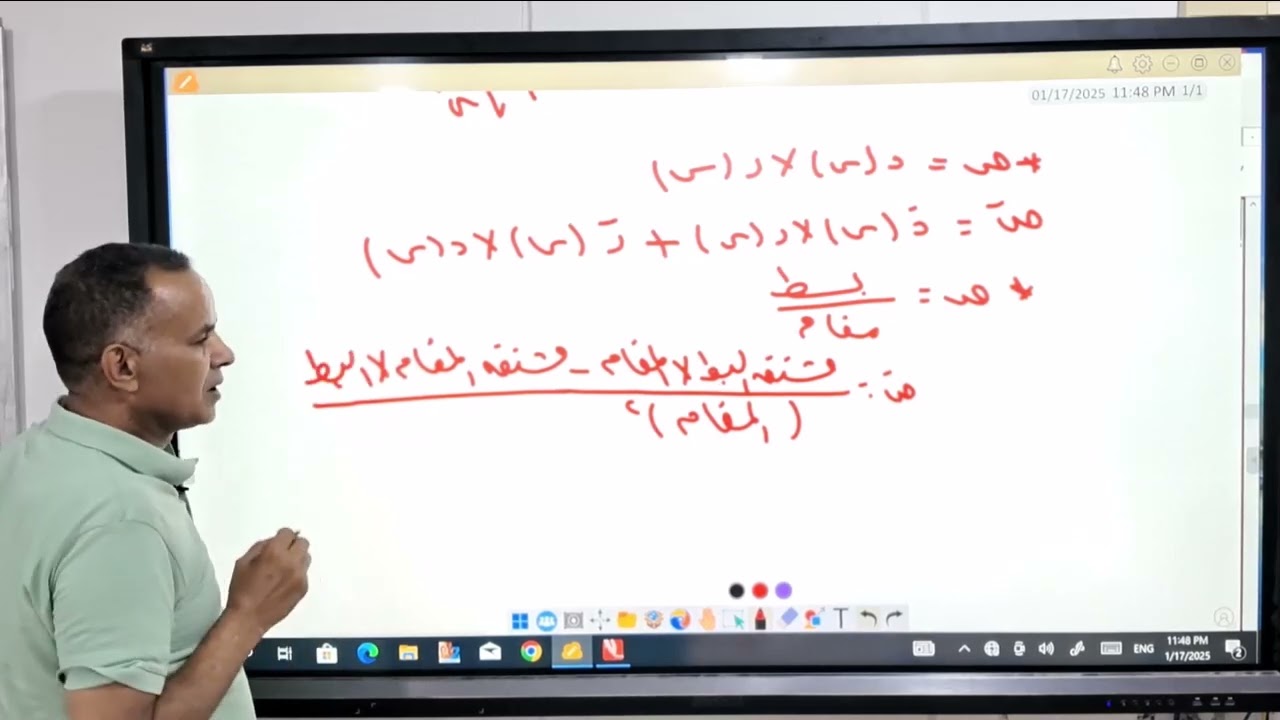 01/17/2025 11:48 PM 1/1
* ص = د(س) × ر(س)
صَ = دَ(س) × ر(س) + رَ(س) × د(س)
* ص = بسط / مقام
صَ = مشتقة البسط × المقام - مشتقة المقام × البسط / (المقام)²
T
ENG
11:48 PM
1/17/2025
2